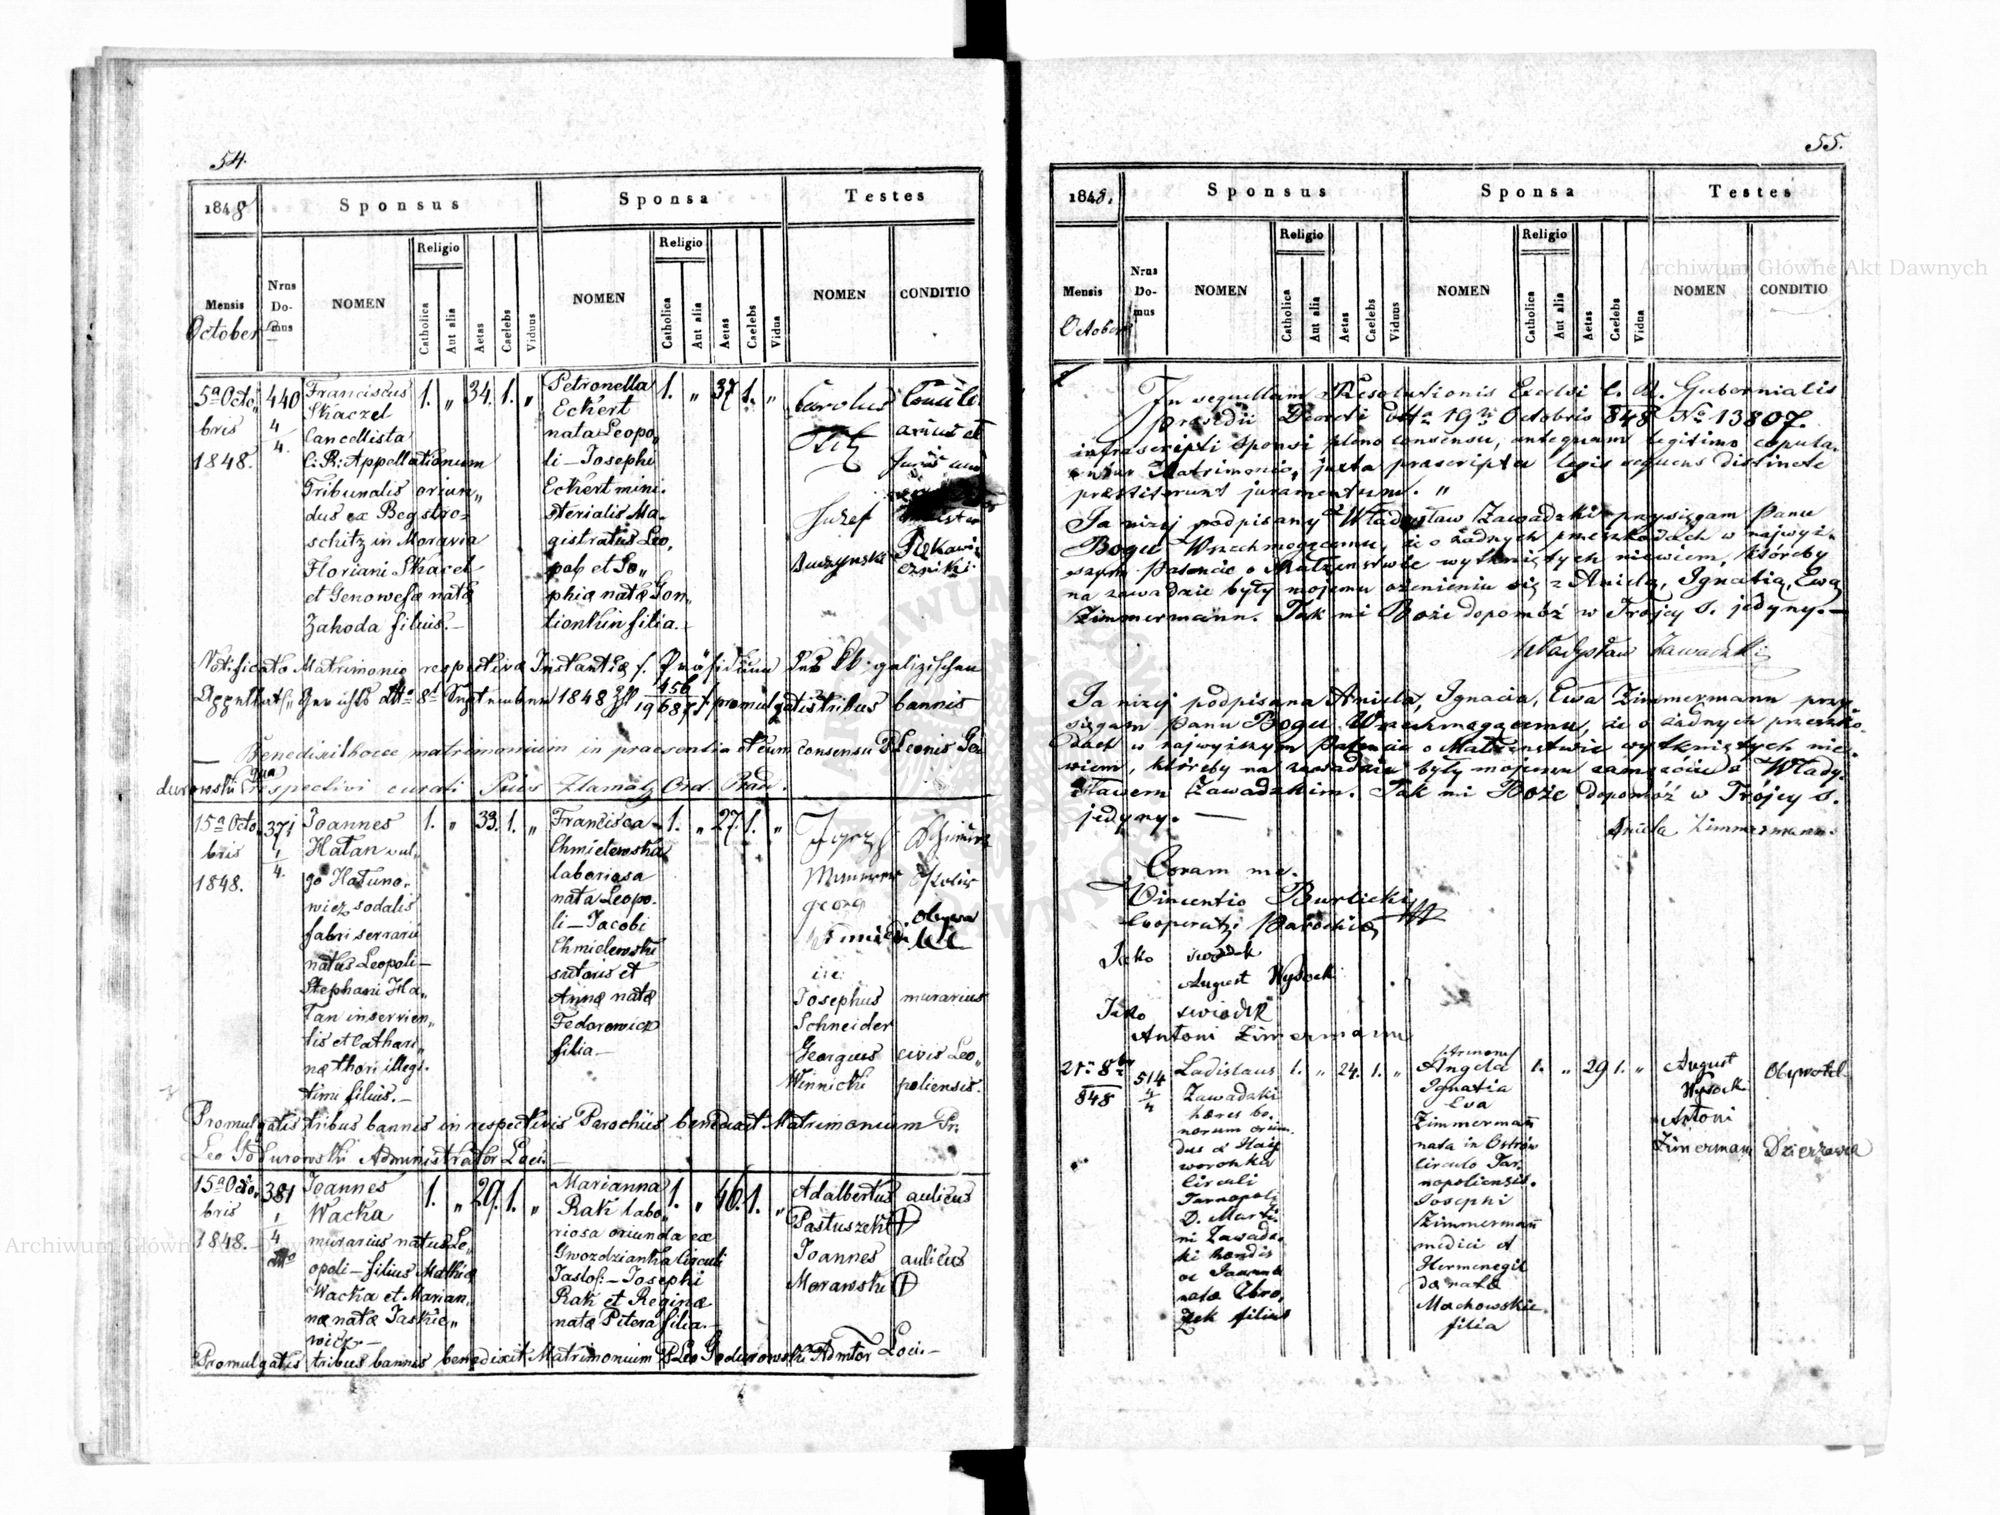 54.
1848
Sponsus
Sponsa
Testes
Mensis
October
Nrus Domus
NOMEN
Religio
Catholica
Aut alia
Aetas
Caelebs
Viduus
NOMEN
Religio
Catholica
Aut alia
Aetas
Caelebs
Vidua
NOMEN
CONDITIO
5a Octo„
bris
1848.
440
4/4.
Franciscus
Skaczel
Cancellista
C: R: Appellationum
Tribunalis oriun„
dus ex
schitz in Moravia
Floriani Skacel
et Genowefæ natæ
Zahoda filius.—
1. „ 34. 1. „
Petronella
Eckert
nata Leopo„
li — Josephi
Eckert mini.
sterialis Ma„
gistratus Leo„
pol: et So„
phiæ natæ
filia.—
1. „ 37 1. „
Carolus
Józef
Notificato Matrimonio respectivæ Instantiæ
1848 promulgatis tribus bannis
Benedixit hocce matrimonium in praesentia et cum consensu Leonis Go„
durowski respectivi curati Pius Ord. Præd.
15a Octo
bris
1848.
371
1/4.
Joannes
Hatan vul„
go Hatuno„
wicz sodalis
fabri serrarii
natus Leopoli —
Stephani Ha„
tan inservien„
tis et Cathari„
næ thori illegi„
timi filius.—
1. „ 33. 1. „
Francisca
Chmielewska
laboriosa
nata Leopo„
li — Jacobi
Chmielewski
sutoris et
Annæ natæ
Fedorowicz
filia.—
1. „ 27. 1. „
Josephus murarius
Schneider
Georgius civis Leo„
Winnicki poliensis.
Promulgatis tribus bannis in respectivis Parochiis benedixit Matrimonium Pr:
Leo Godurowski Administrator Loci.
15a Octo„
bris
1848.
381
1/4
Joannes
Wacka
murarius natus Le„
opoli — filius Mathiæ
Wacka et Marian„
næ natæ Jaskie„
wicz —
1. „ 29. 1. „
Marianna
Rak labo„
riosa oriunda ex
Gwozdzianka Circuli
Jaslo: — Josephi
Rak et Reginæ
natæ Pitera filia.—
1. „ 46. 1. „
Adalbertus aulicus
Pastuszek
Joannes aulicus
Morawski
Promulgatis tribus bannis benedixit Matrimonium P. Leo Godurowski Admtor Loci.—
55.
1848.
Sponsus
Sponsa
Testes
Mensis
October
Nrus Domus
NOMEN
Religio
Catholica
Aut alia
Aetas
Caelebs
Viduus
NOMEN
Religio
Catholica
Aut alia
Aetas
Caelebs
Vidua
NOMEN
CONDITIO
In sequellam Resolutionis Excelsi C. R. Gubernialis
Præsidii 19 Octobris 848 No 13807.
infrascripti Sponsi pleno consensu, antequam legitimo copula„
Matrimonio, juxta præscripta legis sequens distincte
præstiterunt juramentum. „
Ja niżej podpisany Władysław Zawadzki przysięgam Panu
Bogu Wszechmogącemu, że o żadnych przeszkodach w najwyż„
szym Patencie o Małżeństwie wytkniętych niewiem, któreby
na zawadzie były mojemu ożenieniu się z Anielą, Ignacią, Ewą
Zimmermann. Tak mi Boże dopomóż w Trójcy S. jedyny.—
Władysław Zawadzki
Ja niżej podpisana Aniela, Ignacia, Ewa Zimmermann przy„
sięgam Panu Bogu Wszechmogącemu, że o żadnych przeszko„
dach w najwyższym Patencie o Małżeństwie wytkniętych nie„
wiem, któreby na zawadzie były mojemu zamęźciu z Włady„
sławem Zawadzkim. Tak mi Boże dopomóż w Trójcy S.
jedyny. —
Aniela Zimmermann.
Coram me.
Vincentio Burlicki
Cooperatore Parochiæ
Jako świadek
August Wysocki
Jako świadek
Antoni Zimermann
21 8br
848
514
4/4
Ladislaus
Zawadzki
hæres bo„
norum oriun„
dus a Hay
woronka
Circuli
Tarnopol:
D. Marti
ni Zawadz„
ki hæredis
filius
1. „ 24. 1. „
Angela
Ignatia
Eva
Zimmermann
nata in Ostrów
Circulo Tar„
nopoliensi.
Josephi
Zimmermann
medici et
Hermenegil
da natæ
Machowskie
filia
1. „ 29 1. „
August
Wysocki
Obywatel
Antoni
Zimermann
Dzierżawca
Archiwum Główne Akt Dawnych
Archiwum Główne Akt Dawnych